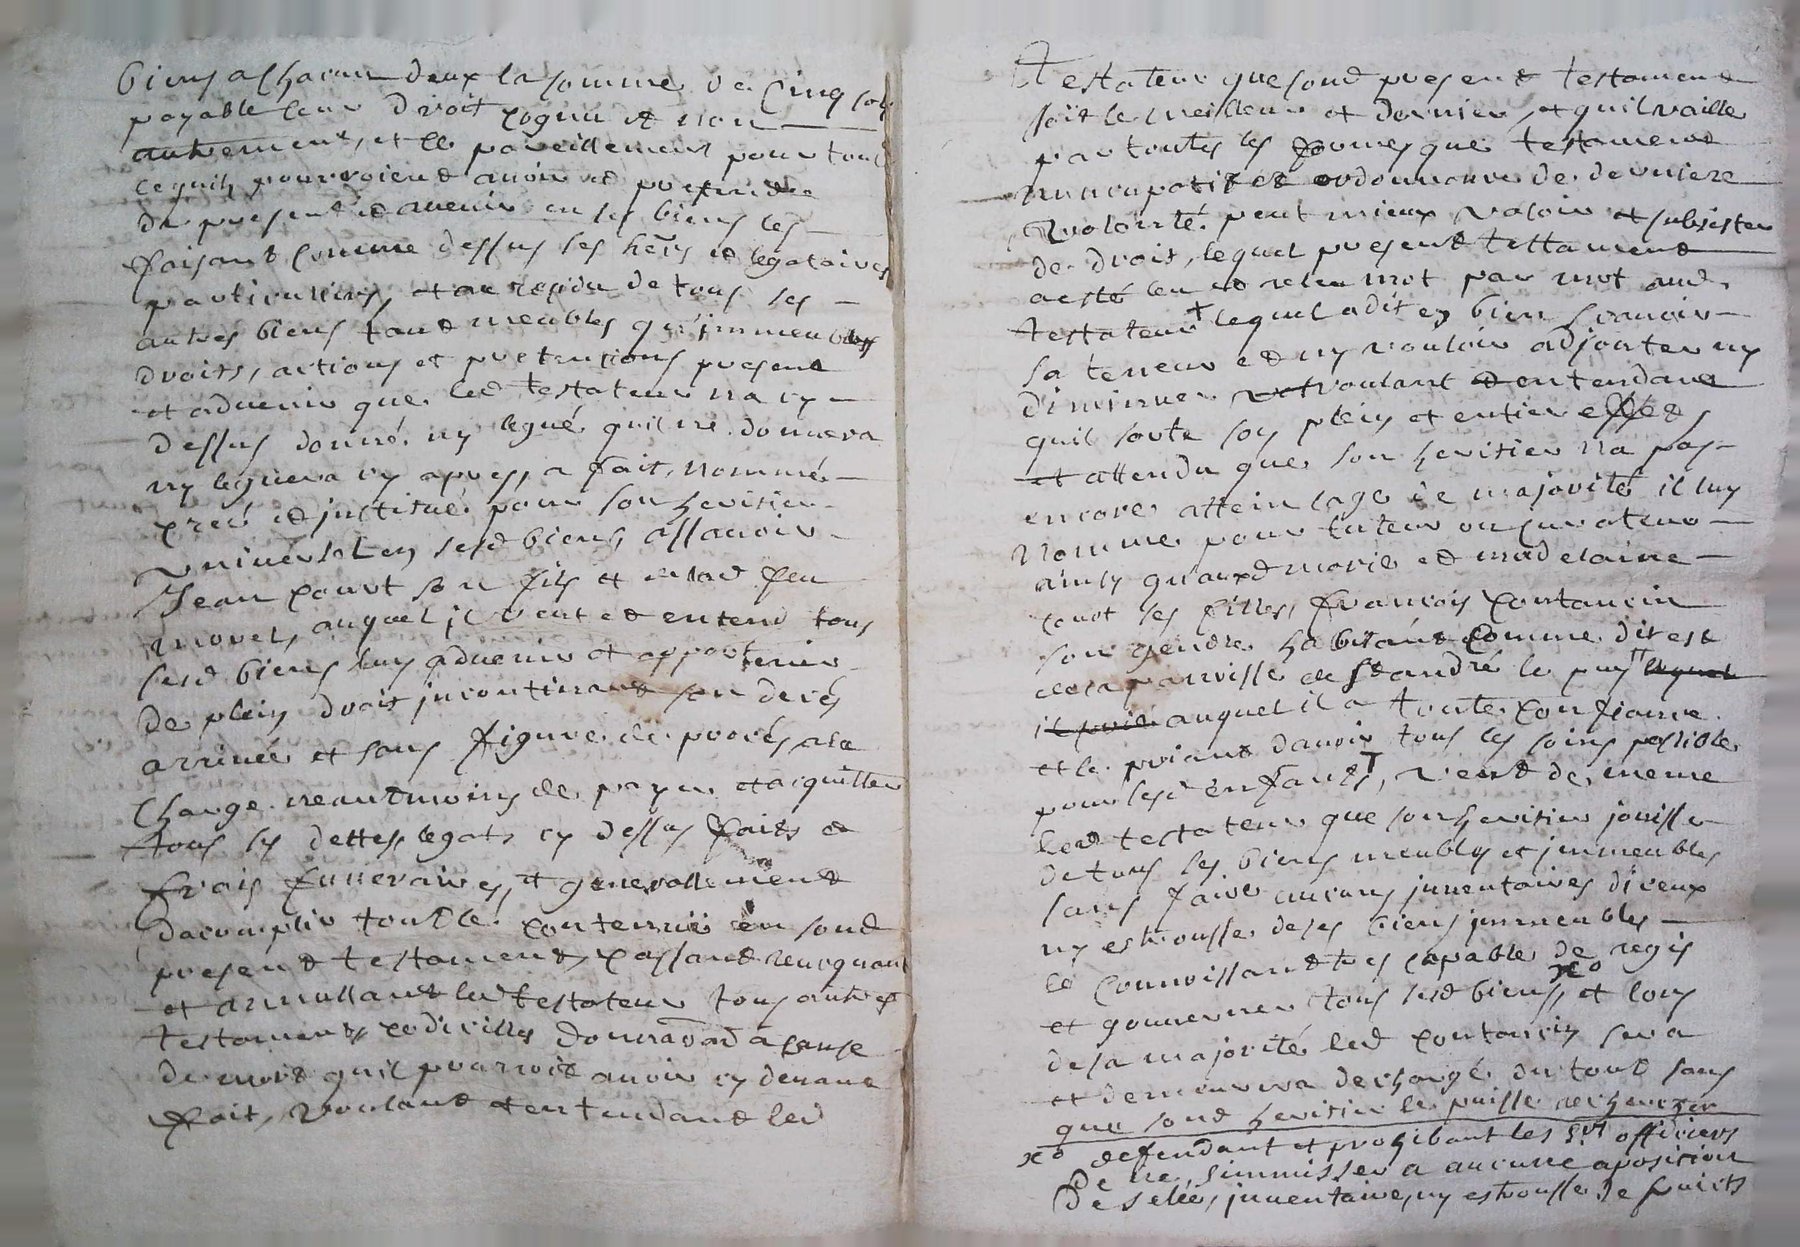 biens a chacun deux la somme de cinq sols
payable leur droit cognu et non
autrement, et ce pareillement pour tout
ce quils pourroient avoir et pretendre
de present et avenir en ses biens les
faisant comme dessus ses hers et legataires
particuliers, et au residu de tous ses
autres biens tant meubles qu'jmmeubles
droits, actions et pretentions present
et advenir que led testateur na cy
dessus donné ny legué quil ne donnera
ny leguera cy apres, a fait, nommé
creé et jnstitué pour son heritier
universel en sesd biens, assavoir
Jean court son fils et
auquel jl veut et entend tous
sesd biens luy advenir et appartenir
de plein droit jncontinant son decés
arrivée et sans figure de procés a la
charge neantmoins de payer et acquitter
tous ses dettes, legats cy dessus faits et
frais funeraires, et generallement
dacomplir tout le contenu en sond
present testament, cassant revoquant
et annullant led testateur tous autres
testaments, codicilles donnaõn a cause
de mort quil pourroit avoir cy devant
fait, voulant et entendant led
testateur que sond present testament
soit le meilleur et dernier, et quil vaille
par toutes les formes que testament
nuncupatif et ordonnance de derniere
volonté peut mieux valoir et subsister
de droit, lequel present testament
a esté leu et releu mot par mot aud
testateur + lequel a dit en bien scavoir
sa teneur et ny vouloir adjouter ny
diminuer voulant et entendant
quil sorte son plein et entier effet
et attendu que son heritier na pas
encore attein lage de majorité il luy
nomme pour tuteur ou curateur
ainsy quaux d marie et madelaine
court ses filles, francois coutancin
son gendre habitant comme dit est
de la parroisse de st andré le puy lequel
il prie auquel il a toute confiance
et le priant davoir tous les soins possible
pour lesd enfants T, veut de meme
led testateur que son heritier jouisse
de tous ses biens meubles et jmmeubles
sans faire aucuns jnventaires diceux
ny estrousse de ses biens jmmeubles
le connoissant tres capable de regir
et gouverner tous sesd biens, xo et lors
de sa majorité led coutancin sera
et demeurera dechargé du tout sans
que sond heritier le puisse rechercher
xo deffendant et prohibant les srs officiers
De ne, simmisser a aucune aposition
De selée, jnventaire, ny estrousse de fruits